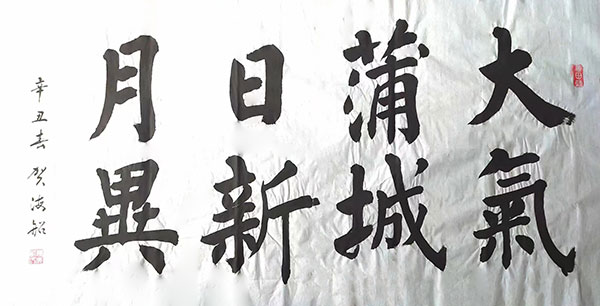 大氣
蒲城
日新
月異
辛丑春 贺海船